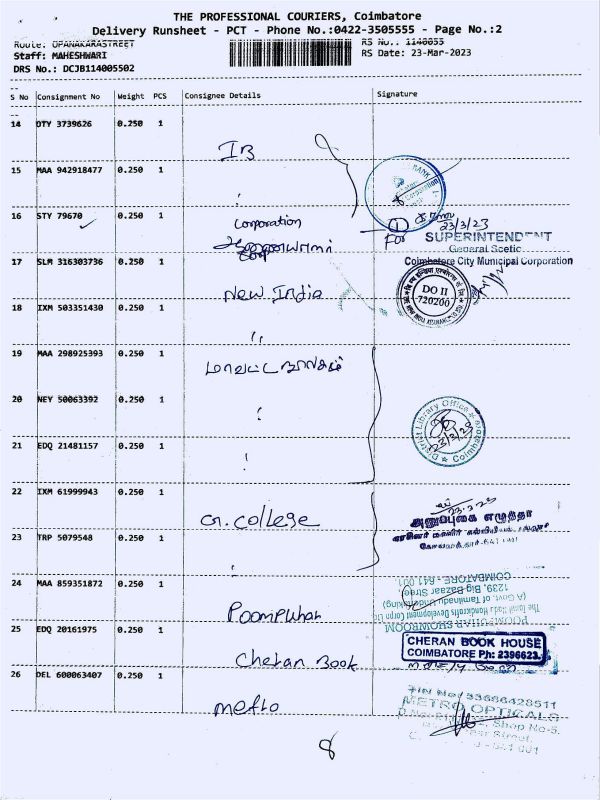 THE PROFESSIONAL COURIERS, Coimbatore
Delivery Runsheet - PCT - Phone No.:0422-3505555 - Page No.:2
Route: OPANAKARASTREET
RS No.: 1140055
Staff: MAHESHWARI
RS Date: 23-Mar-2023
DRS No.: DCJB114005502
S No Consignment No Weight PCS Consignee Details Signature
14 DTY 3739626 0.250 1
IB
15 MAA 942918477 0.250 1
BANK
16 STY 79670 0.250 1
Corporation
23/3/23
For
SUPERINTENDENT
General Scetic
Coimbatore City Municipal Corporation
17 SLM 316303736 0.250 1
New India
DO II
720200
18 IXM 503351430 0.250 1
"
19 MAA 298925393 0.250 1
மாவட்ட நூலகம்
20 NEY 50063392 0.250 1
District Library Office
Coimbatore
21 EDQ 21481157 0.250 1
22 IXM 61999943 0.250 1
G.college
23.3.23
அனுப்புகை எழுத்தர்
23 TRP 5079548 0.250 1
24 MAA 859351872 0.250 1
Poompuhar
POOMPUHAR SHOWROOM
The Tamil Nadu Handicrafts Development Corpn Ltd
(A Govt. of Tamilnadu Undertaking)
1239, Big Bazaar Street
COIMBATORE - 641 001
25 EDQ 20161975 0.250 1
Cheran Book
CHERAN BOOK HOUSE
COIMBATORE Ph: 2396623
26 DEL 600063407 0.250 1
metro
TIN No: 33686428511
METRO OPTICALS
Shop No-5,
Street,
641 001
8